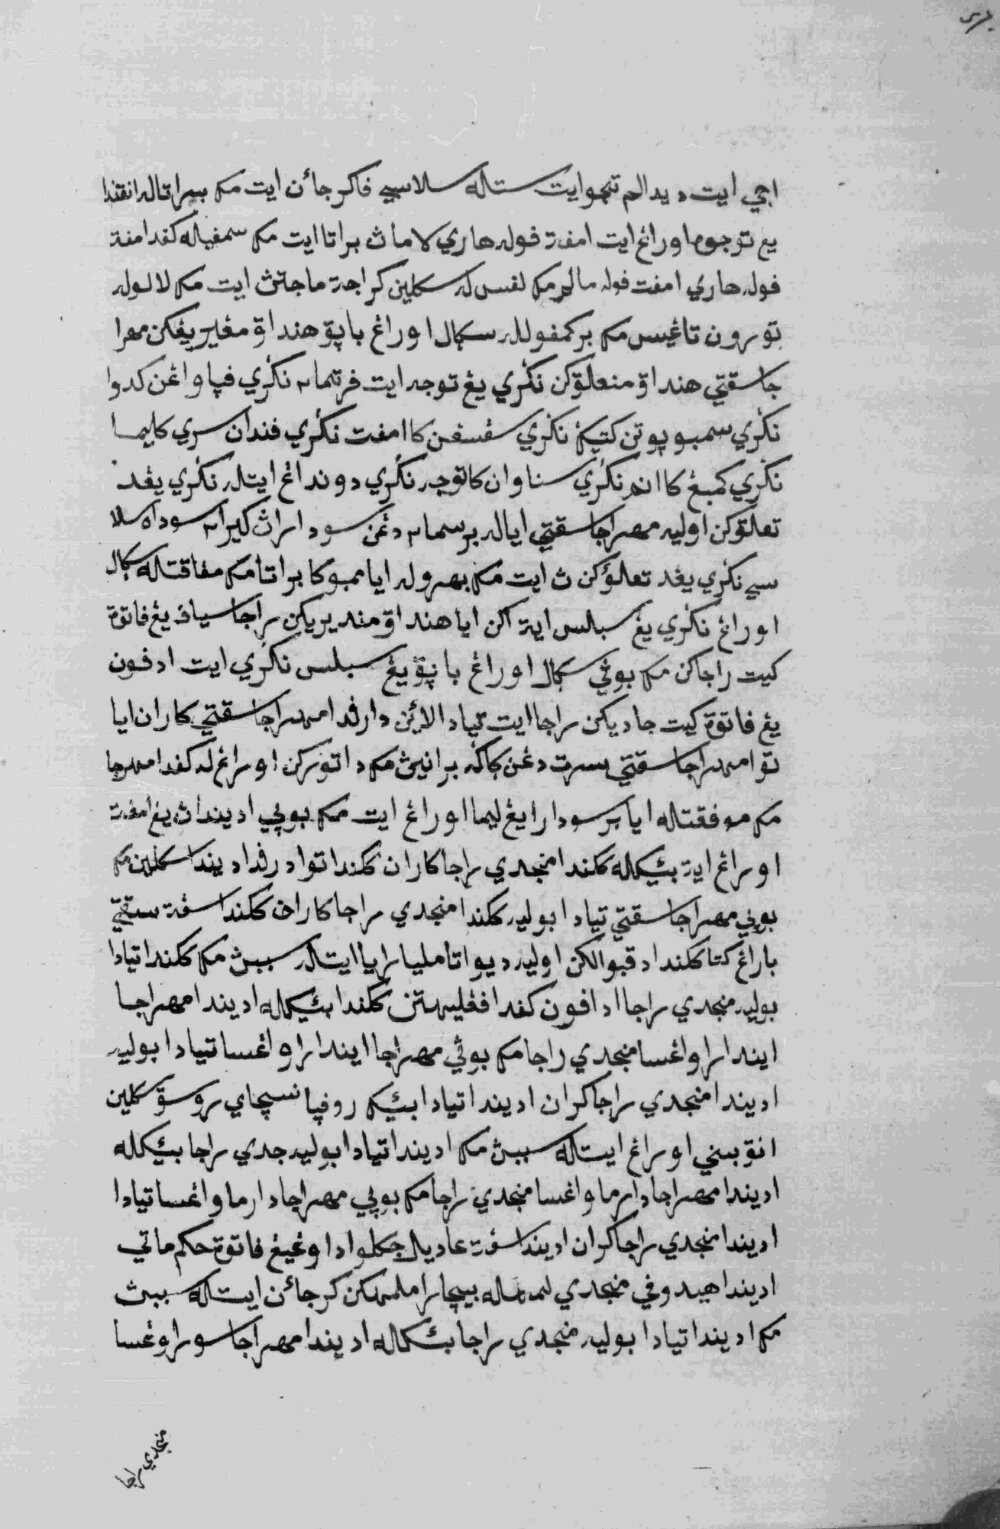 اجي ايت ديدالم تمبوايت ستله سلاسي فاكرجأن ايت مك براتاله انقندا
يڠ توجوه اورڠ ايت امفت فوله هاري لامان براتا ايت مك سمفيله كفد امفت
فوله هاري امفت فوله مالم مك لفسله سكلين كراجة ماجتن ايت مك لالوله
تورون تاڠيس مك بركمفولله سكل اورڠ باپق هندق مڠيريڠكن مهرا
جاسقتي هندق منعلوقكن نڬري يڠ توجه ايت فرتمام نڬري ڤڤاواڠن كدوا
نڬري سمبوپوتن كتيݢ نڬري سڤسڤن كامفت نڬري فندان سري كليما
نڬري كمبڠ كانم نڬري سناوان كاتوجه نڬري دوندڠ ايتله نڬري يڠد
تعلوقكن اوليه مهراجاسقتي اياله برسمام دڠن سودارات كيرام سوداه سلا
سي نڬري يڠد تعلوقكن ث ايت مك بهرولر ايا ممبوكا براتا مك مفاقتله سكل
اورڠ نڬري يڠ سبلس ايت اكن ايا هندق منديريكن راجا سياف يڠ فاتوة
كيت راجاكن مك بوڽي سكل اورڠ باپق يڠ سبلس نڬري ايت ادفون
يڠ فاتوة كيت جاديكن راجا ايت تياد الاين دارفد امهراجاسقتي كاران ايا
توا مهراجاسقتي سرت دڠن ݢاݢه برانيث مك داتوركن اورڠله كفد امهرجا
مك موفقتله ايا برسودارا يڠ ليما اورڠ ايت مك بوڽي اديندان يڠ امفت
اورڠ ايت بئيكله ككندا منجدي راجا كاران ككندا توا درفد اديندا سكلين مك
بوڽي مهراجاسقتي تيادا بوليه ككندا منجدي راجا كاران ككندا سفت سقتي
بارڠ كتا ككندا دقبولكن اوليه ديواتا مليا رايا ايتله سببث مك ككندا تيادا
بوليه منجدي راجا ادافون كفد افڠليهتن ككندا بئيكله اديندا مهراجا
ايندارا واڠسا منجدي راجا مك بوڽي مهراجا ايندارا واڠسا تيادا بوليه
اديندا منجدي راجا كران اديندا تيادا بئيك روفا نسچاي روسق سكلين
انق بيني اورڠ ايتله سببث مك اديندا تيادا بوليه جدي راجا بئيكله
اديندا مهراجا دارما واڠسا منجدي راجا مك بوڽي مهراجا دارما واڠسا تيادا
اديندا منجدي راجا كران اديندا سفت عاديل جكلوادا اوڠيڠ فاتوة حكم ماتي
اديندا هيدوفي منجدي بيچارا كرجأن ايتله سببث
مك اديندا تيادا بوليه منجدي راجا بئيكله اديندا مهراجا سوراوڠسا
منجدي راجا